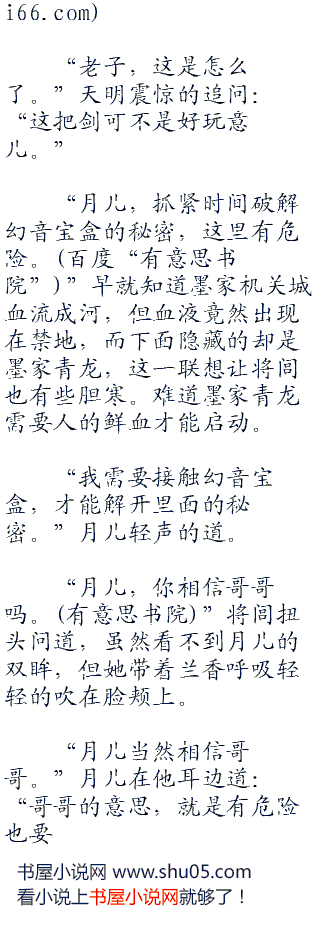 i66.com)
“老子，这是怎么
了。”天明震惊的追问：
“这把剑可不是好玩意
儿。”
“月儿，抓紧时间破解
幻音宝盒的秘密，这里有危
险。(百度“有意思书
院”)”早就知道墨家机关城
血流成河，但血液竟然出现
在禁地，而下面隐藏的却是
墨家青龙，这一联想让将闾
也有些胆寒。难道墨家青龙
需要人的鲜血才能启动。
“我需要接触幻音宝
盒，才能解开里面的秘
密。”月儿轻声的道。
“月儿，你相信哥哥
吗。(有意思书院)”将闾扭
头问道，虽然看不到月儿的
双眸，但她带着兰香呼吸轻
轻的吹在脸颊上。
“月儿当然相信哥
哥。”月儿在他耳边道：
“哥哥的意思，就是有危险
也要
书屋小说网 www.shu05.com
看小说上书屋小说网就够了！